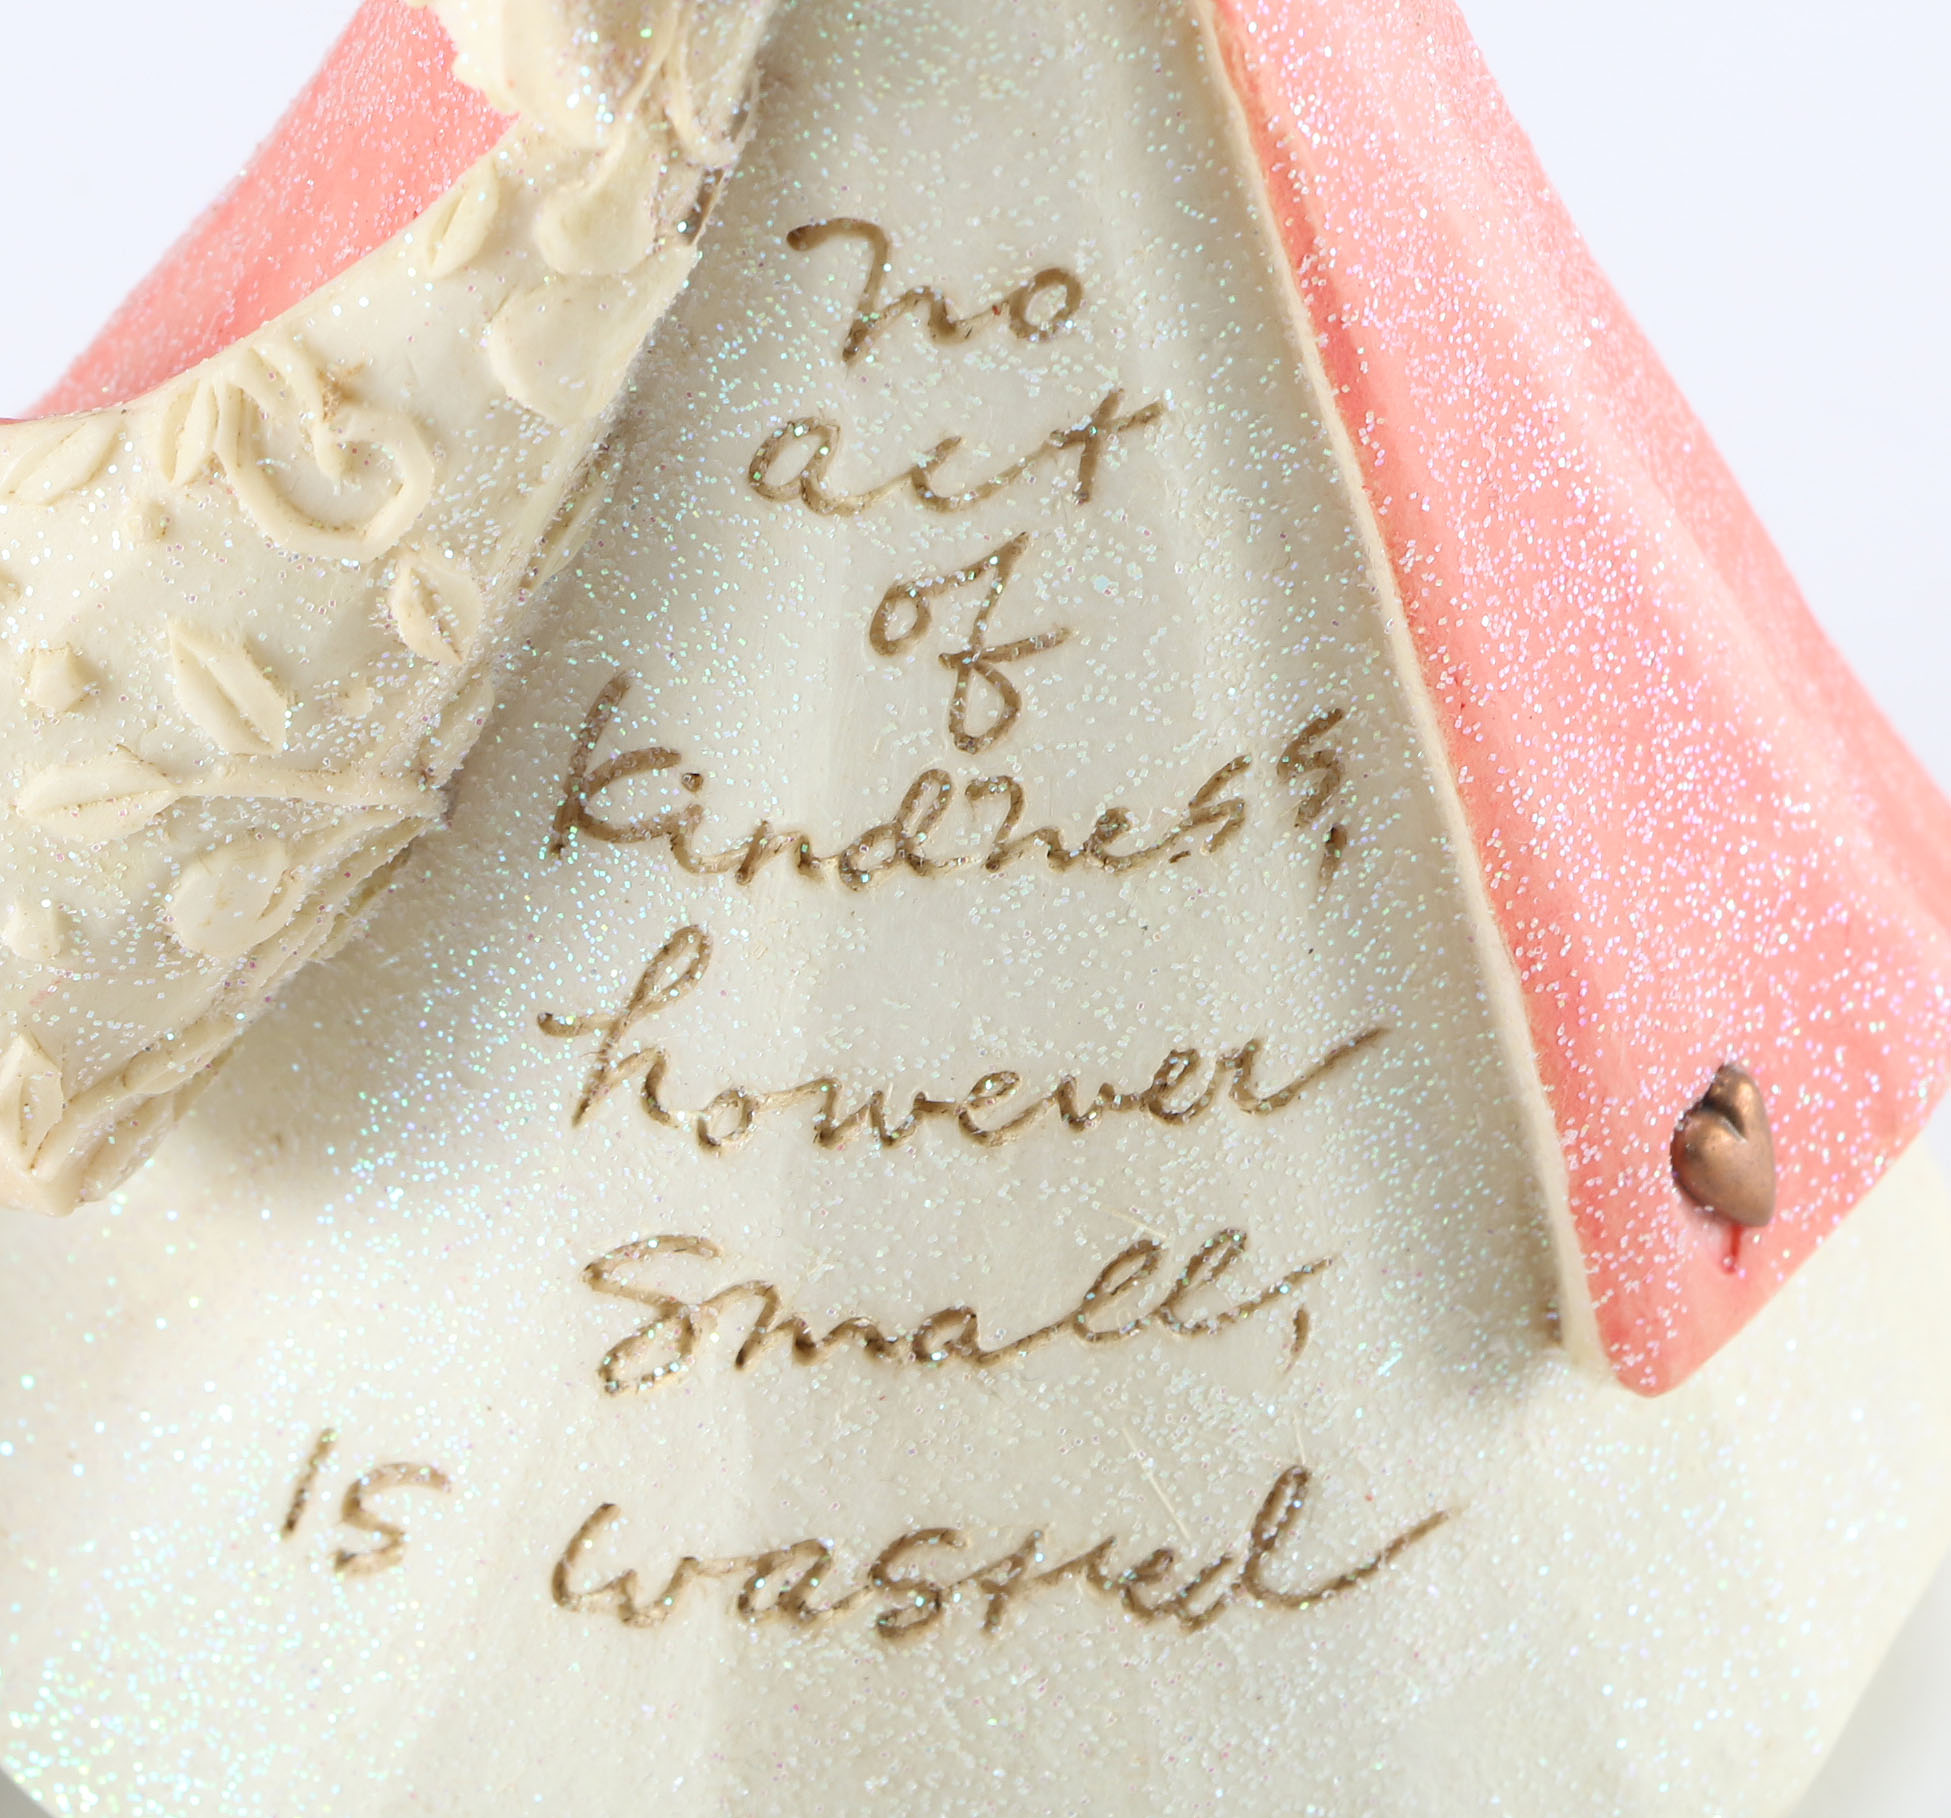 no
act
of
kindness,
however
small,
is wasted